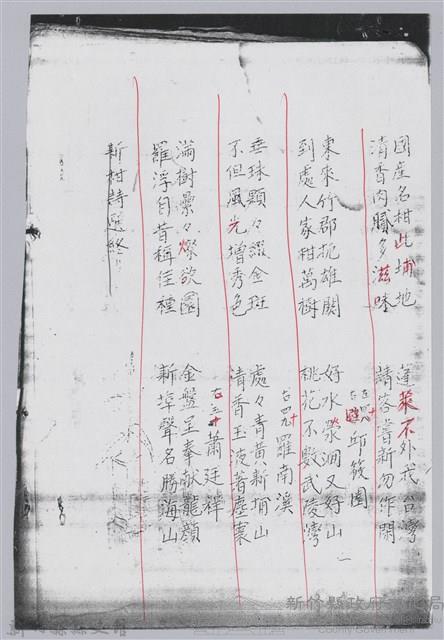 國產名柑此埔地 蓬萊不外我台灣
清香肉膩多滋味 請客嘗新勿作閑
邱筱園
東來竹郡扼雄關 好水瀠洄又好山
到處人家柑萬樹 桃花不數武陵灣
羅南溪
垂珠顆々綴金斑 處々青黃新埔山
不但風光增秀色 清香玉液著塵寰
蕭廷祥
滿樹纍々燦欲圓 金盤呈奉獻龍顏
羅浮自昔稱佳種 新埤聲名勝海山
新柑詩選終
新竹縣政府文化局
County Government